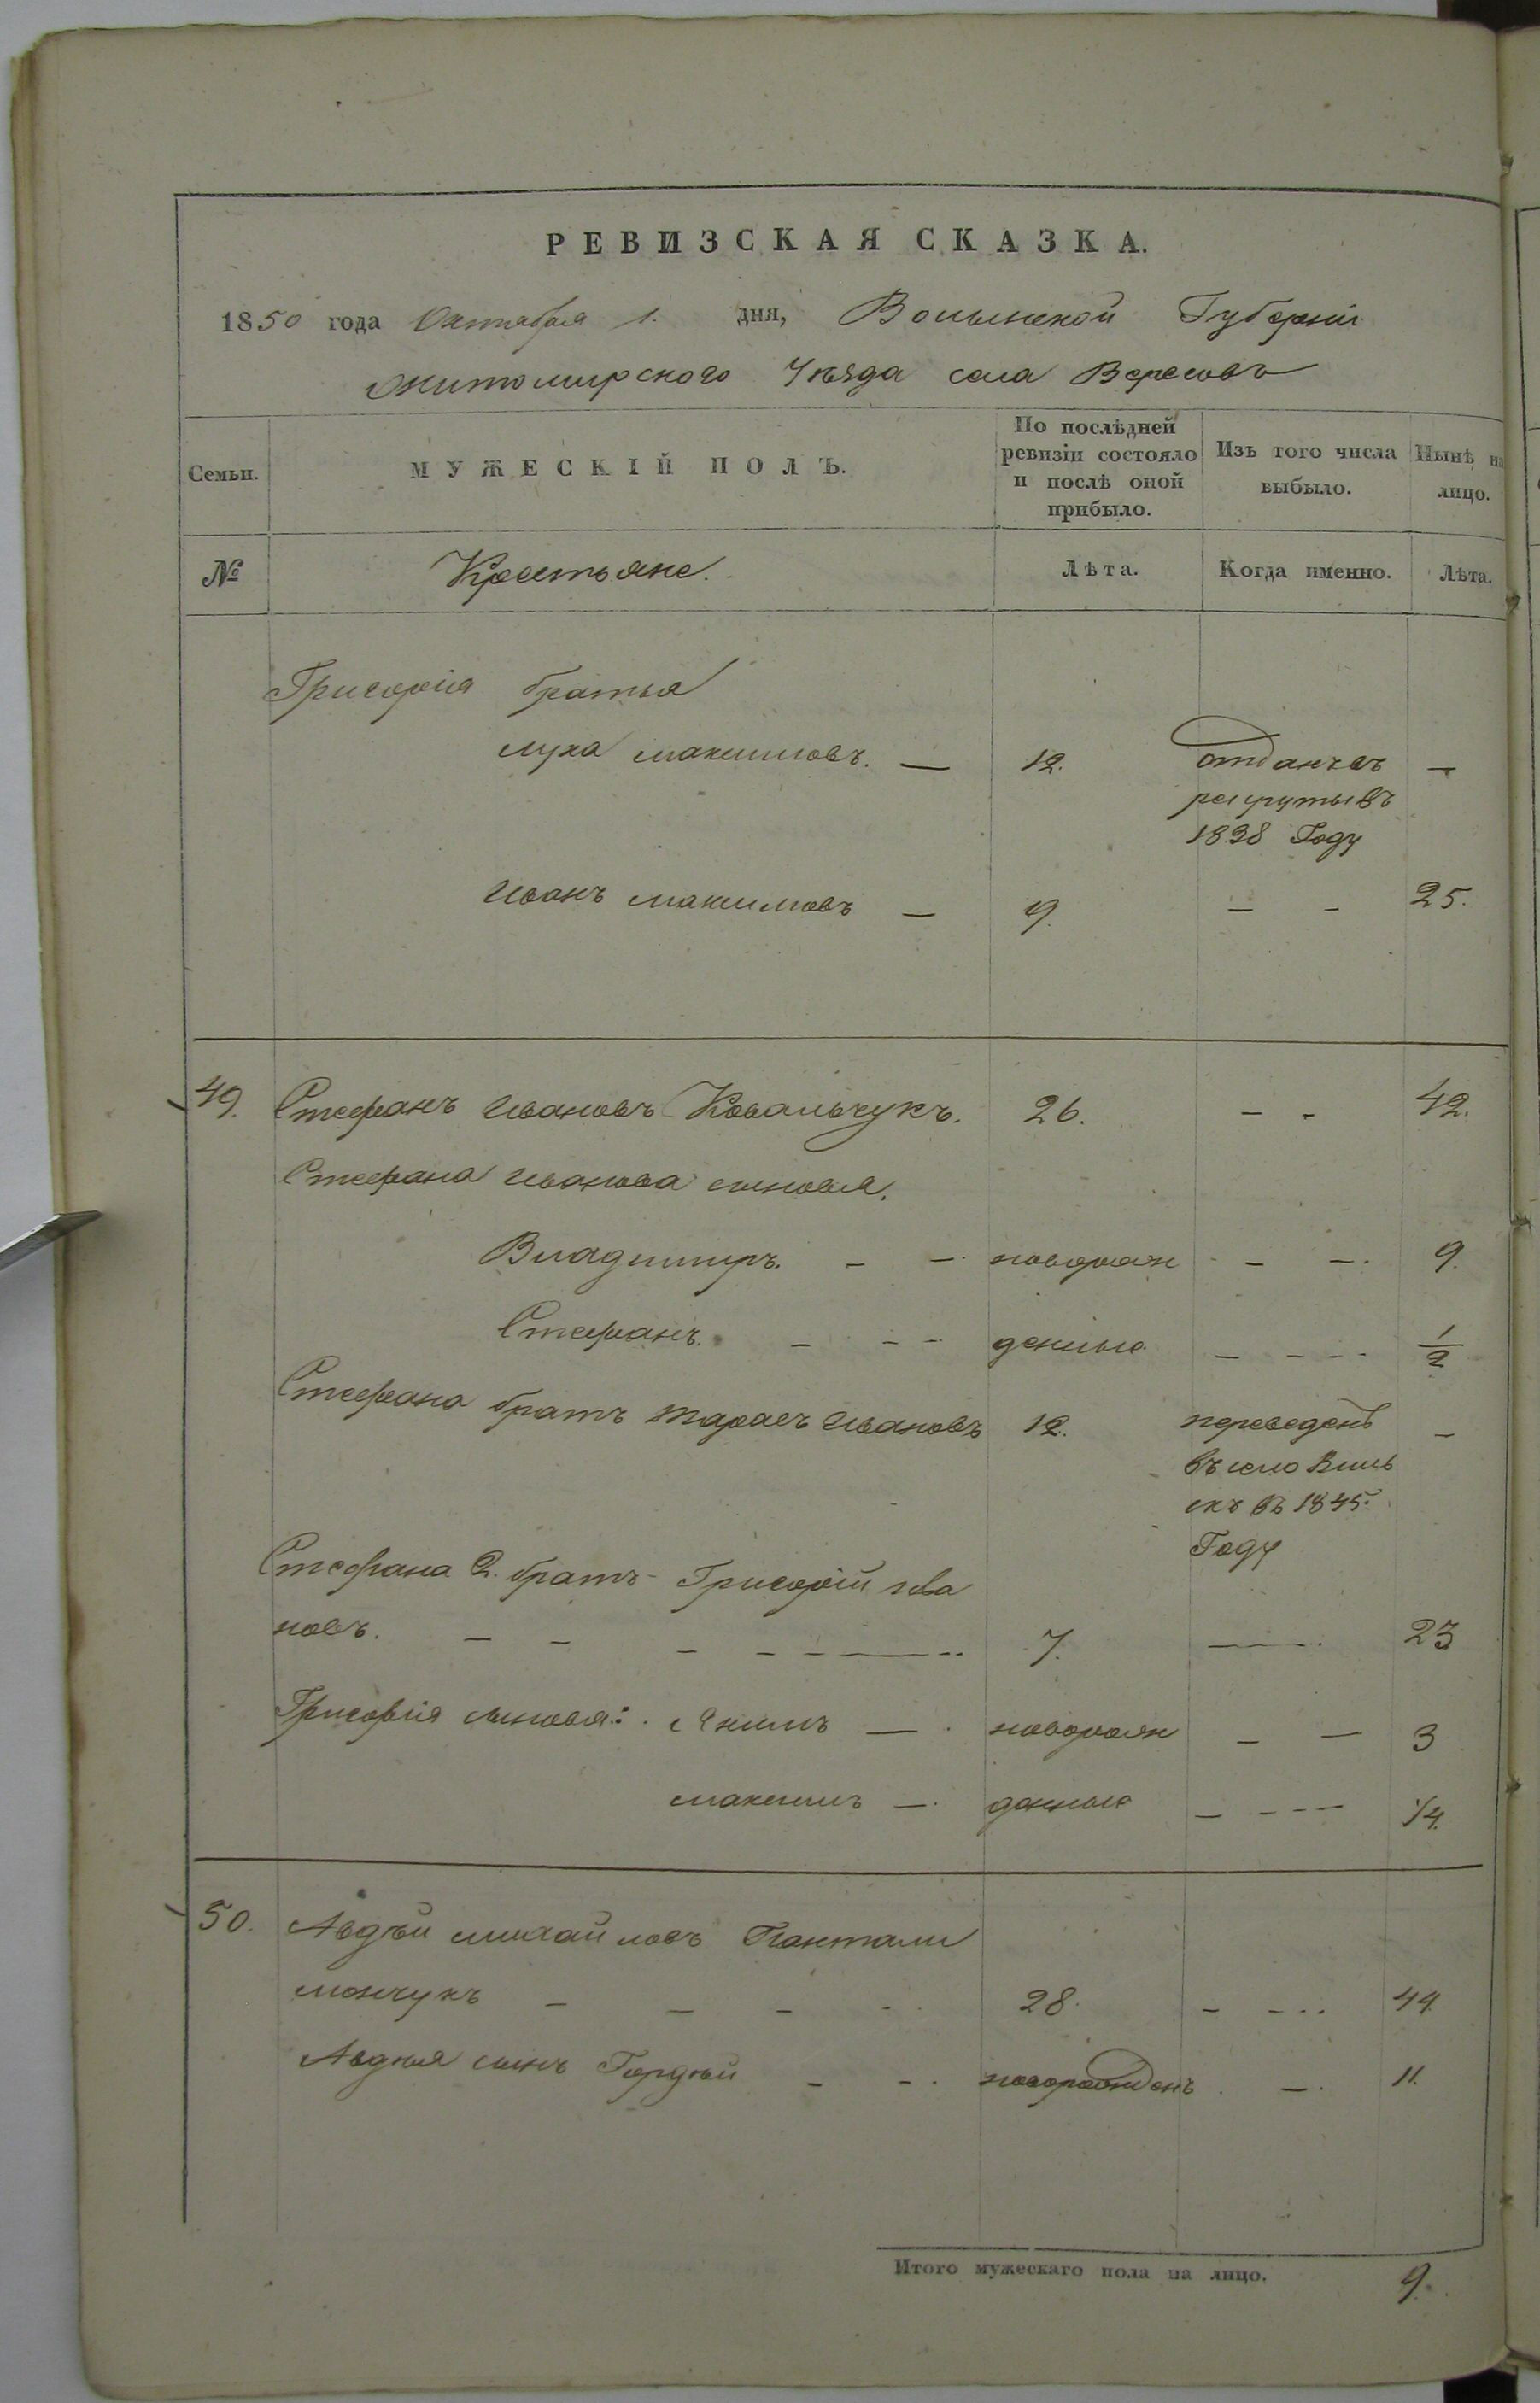 РЕВИЗСКАЯ СКАЗКА.
1850 года Октября 1. дня, Волынской Губерніи
Житомирского Уѣзда села Вересовъ
Семьи.
МУЖЕСКІЙ ПОЛЪ.
По послѣдней
ревизіи состояло
и послѣ оной
прибыло.
Изъ того числа
выбыло.
Нынѣ на
лицо.
№ Крестьяне. Лѣта. Когда именно. Лѣта.
Григорія братья
Лука Максимовъ. — 12. отданъ въ —
рекрутывъ
1838 Году
Иванъ Максимовъ — 9. — - 25.
49. Стефанъ Ивановъ Ковальчукъ. 26. — - 42.
Стефана Иванова сыновья.
Владимиръ. — — новорож — —. 9.
Стефанъ. — - - денные — - - - 1/2
Стефана братъ Тарасъ Ивановъ 12. переведенъ —
въ село Виль
скъ въ 1845.
Году
Стефана 2. братъ Григорій Ива
новъ. — — — — — — 7. — 23
Григорія сыновья: Якимъ — . новорож — — 3
Максимъ —. денные — - - - 1/4.
50. Авдѣй Михайловъ Пантали
мончукъ — — — - 28. — - .. 44
Авдѣя сынъ Гордѣй — -. новорожденъ . —. 11.
Итого мужескаго пола на лицо. 9.